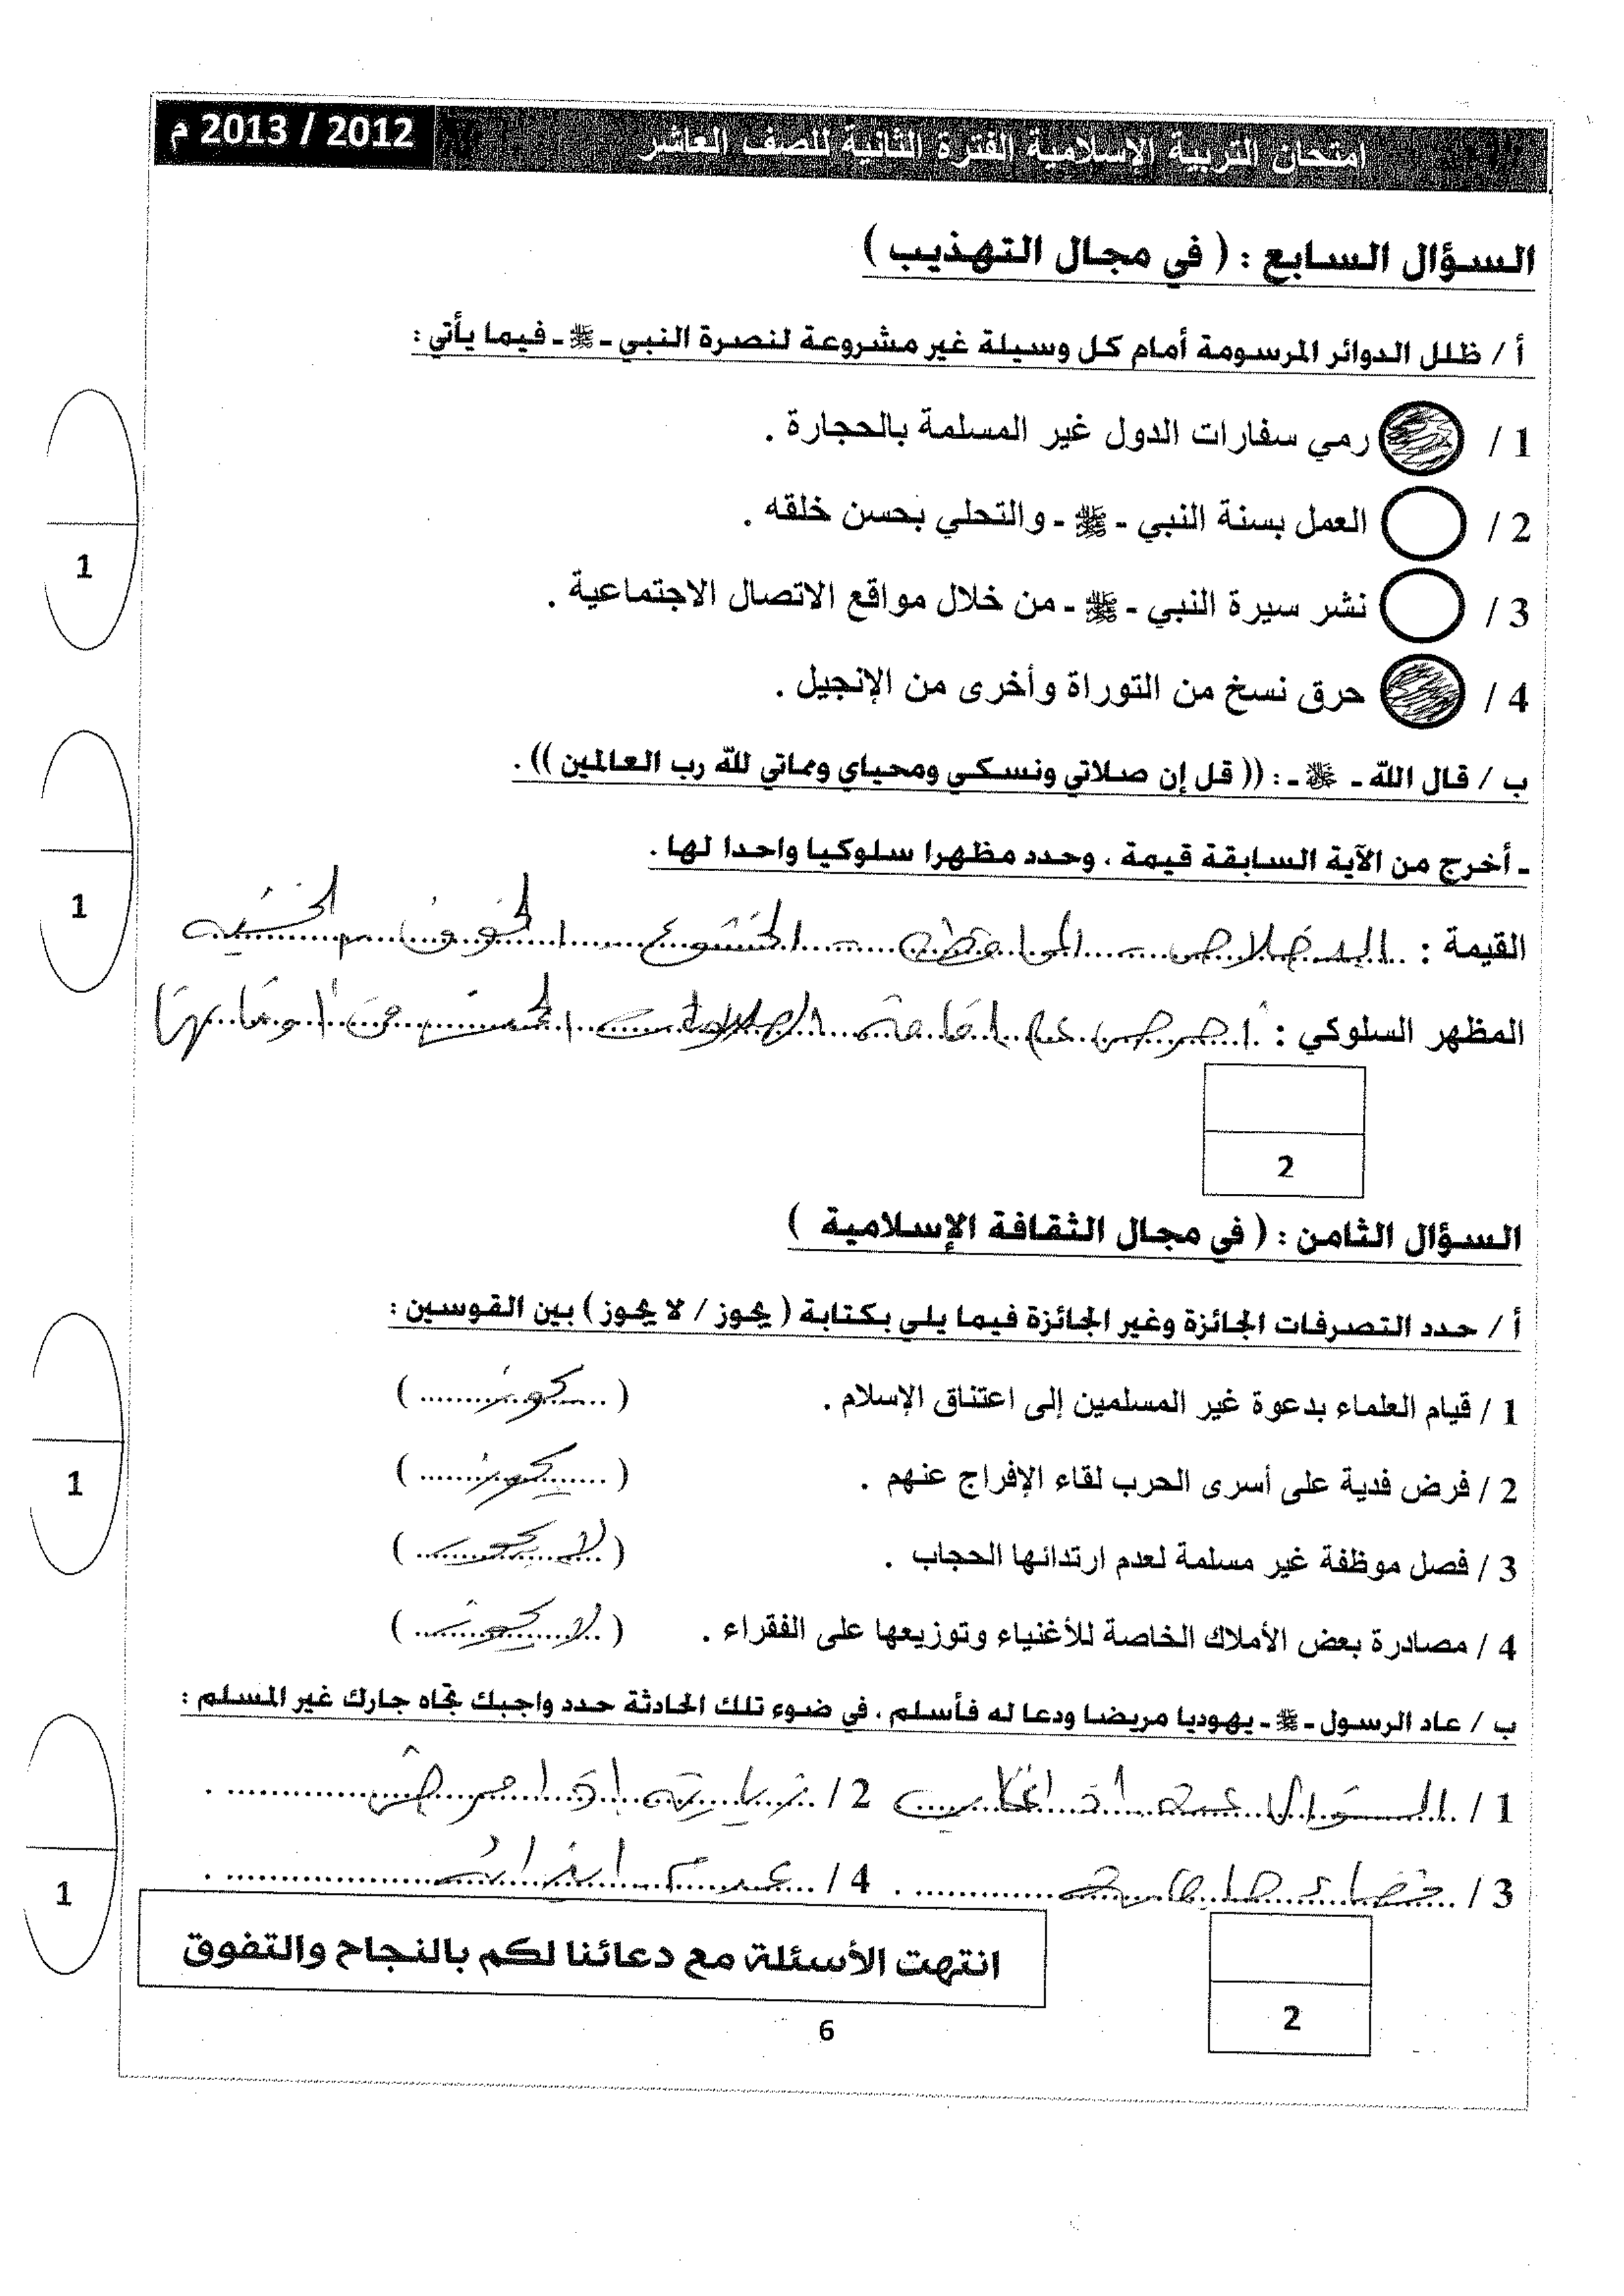 امتحان التربية الإسلامية الفترة الثانية للصف العاشر 2012 / 2013 م
السؤال السابع : ( في مجال التهذيب )
أ / ظلل الدوائر المرسومة أمام كل وسيلة غير مشروعة لنصرة النبي - ﷺ - فيما يأتي :
1 / رمي سفارات الدول غير المسلمة بالحجارة .
2 / العمل بسنة النبي - ﷺ - والتحلي بحسن خلقه .
3 / نشر سيرة النبي - ﷺ - من خلال مواقع الاتصال الاجتماعية .
4 / حرق نسخ من التوراة وأخرى من الإنجيل .
1
ب / قال الله - ﷻ - : (( قل إن صلاتي ونسكي ومحياي ومماتي لله رب العالمين )) .
- أخرج من الآية السابقة قيمة ، وحدد مظهرا سلوكيا واحدا لها .
1
القيمة : الخشوع الخوف الخشية
المظهر السلوكي : احرص على إقامة الصلوات الخمس في أوقاتها
2
السؤال الثامن : ( في مجال الثقافة الإسلامية )
أ / حدد التصرفات الجائزة وغير الجائزة فيما يلي بكتابة ( يجوز / لا يجوز ) بين القوسين :
1 / قيام العلماء بدعوة غير المسلمين إلى اعتناق الإسلام . ( يجوز )
2 / فرض فدية على أسرى الحرب لقاء الإفراج عنهم . ( يجوز )
3 / فصل موظفة غير مسلمة لعدم ارتدائها الحجاب . ( لا يجوز )
4 / مصادرة بعض الأملاك الخاصة للأغنياء وتوزيعها على الفقراء . ( لا يجوز )
1
ب / عاد الرسول - ﷺ - يهوديا مريضا ودعا له فأسلم ، في ضوء تلك الحادثة حدد واجبك تجاه جارك غير المسلم :
1 / السؤال عنه إذا غاب 2 / زيارته إذا مرض .
3 / قضاء حاجاته . 4 / عدم إيذائه .
1
انتهت الأسئلة مع دعائنا لكم بالنجاح والتفوق
2
6